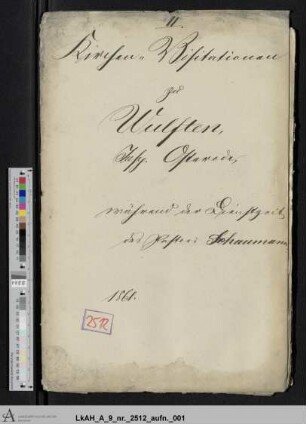 II.
Kirchen-Visitationen
zu
Wulften,
Insp. Osterode,
während der Dienstzeit
des Pastors Schaumann
1861.
2512
LkAH_A_9_nr._2512_aufn._001